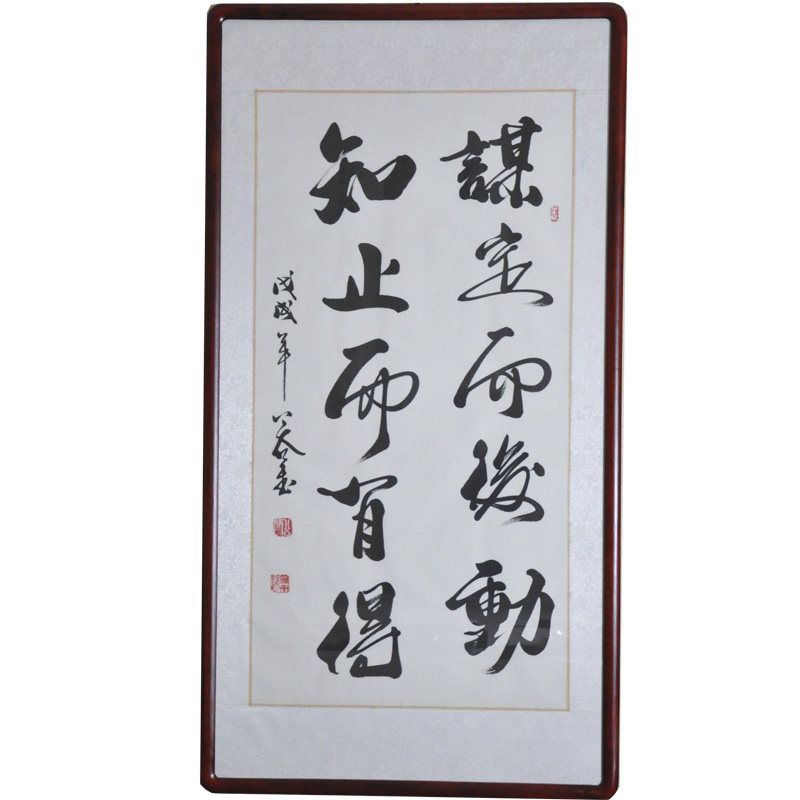 謀定而後動
知止而有得
戊戌年